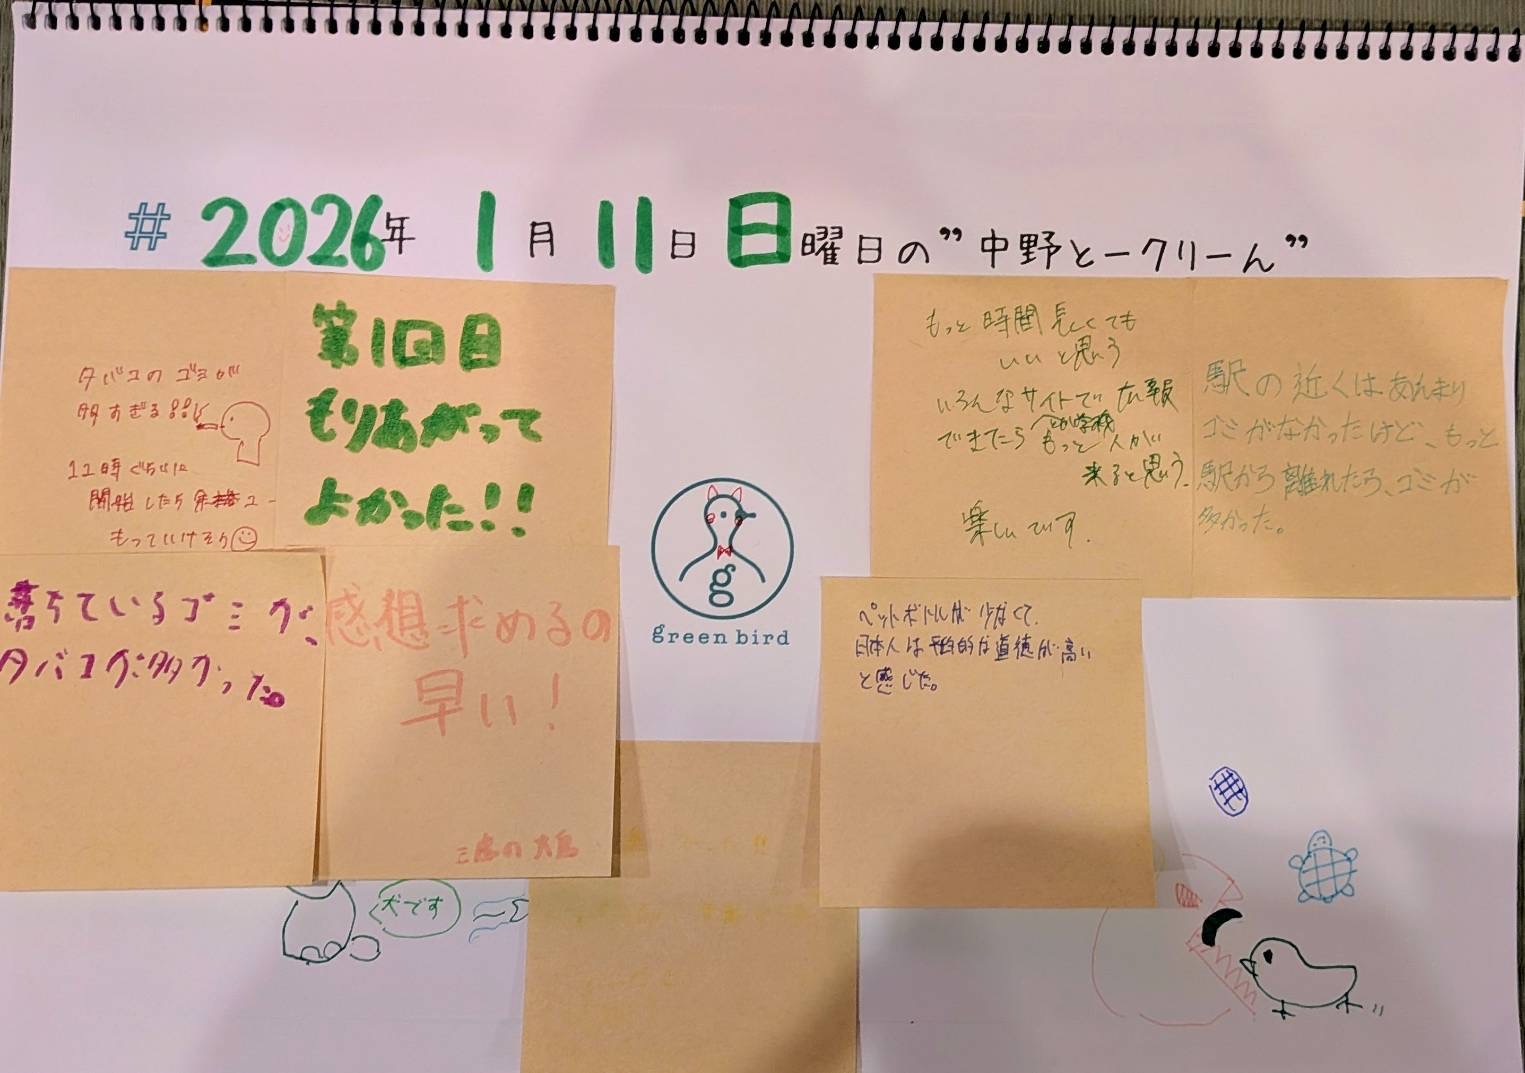 # 2026年 1月 11日 日曜日の”中野とークリーん”
タバコのゴミが
多すぎる!!
12時ぐらいに
開始したら
もっていけそう
第1回目
もりあがって
よかった!!
もっと時間長くても
いいと思う
いろんなサイトで広報
とか学校
できたらもっと人が
来ると思う。
楽しいです.
駅の近くはあんまり
ゴミがなかったけど、もっと
駅から離れたら、ゴミが
多かった。
落ちているゴミが、
タバコが多かった。
感想求めるの
早い!
g
green bird
ペットボトルが少なくて、
日本人は平均的な道徳が高い
と感じた。
犬です